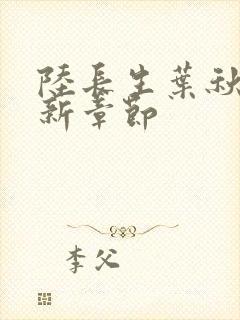 陸長生葉秋
新章節
李父